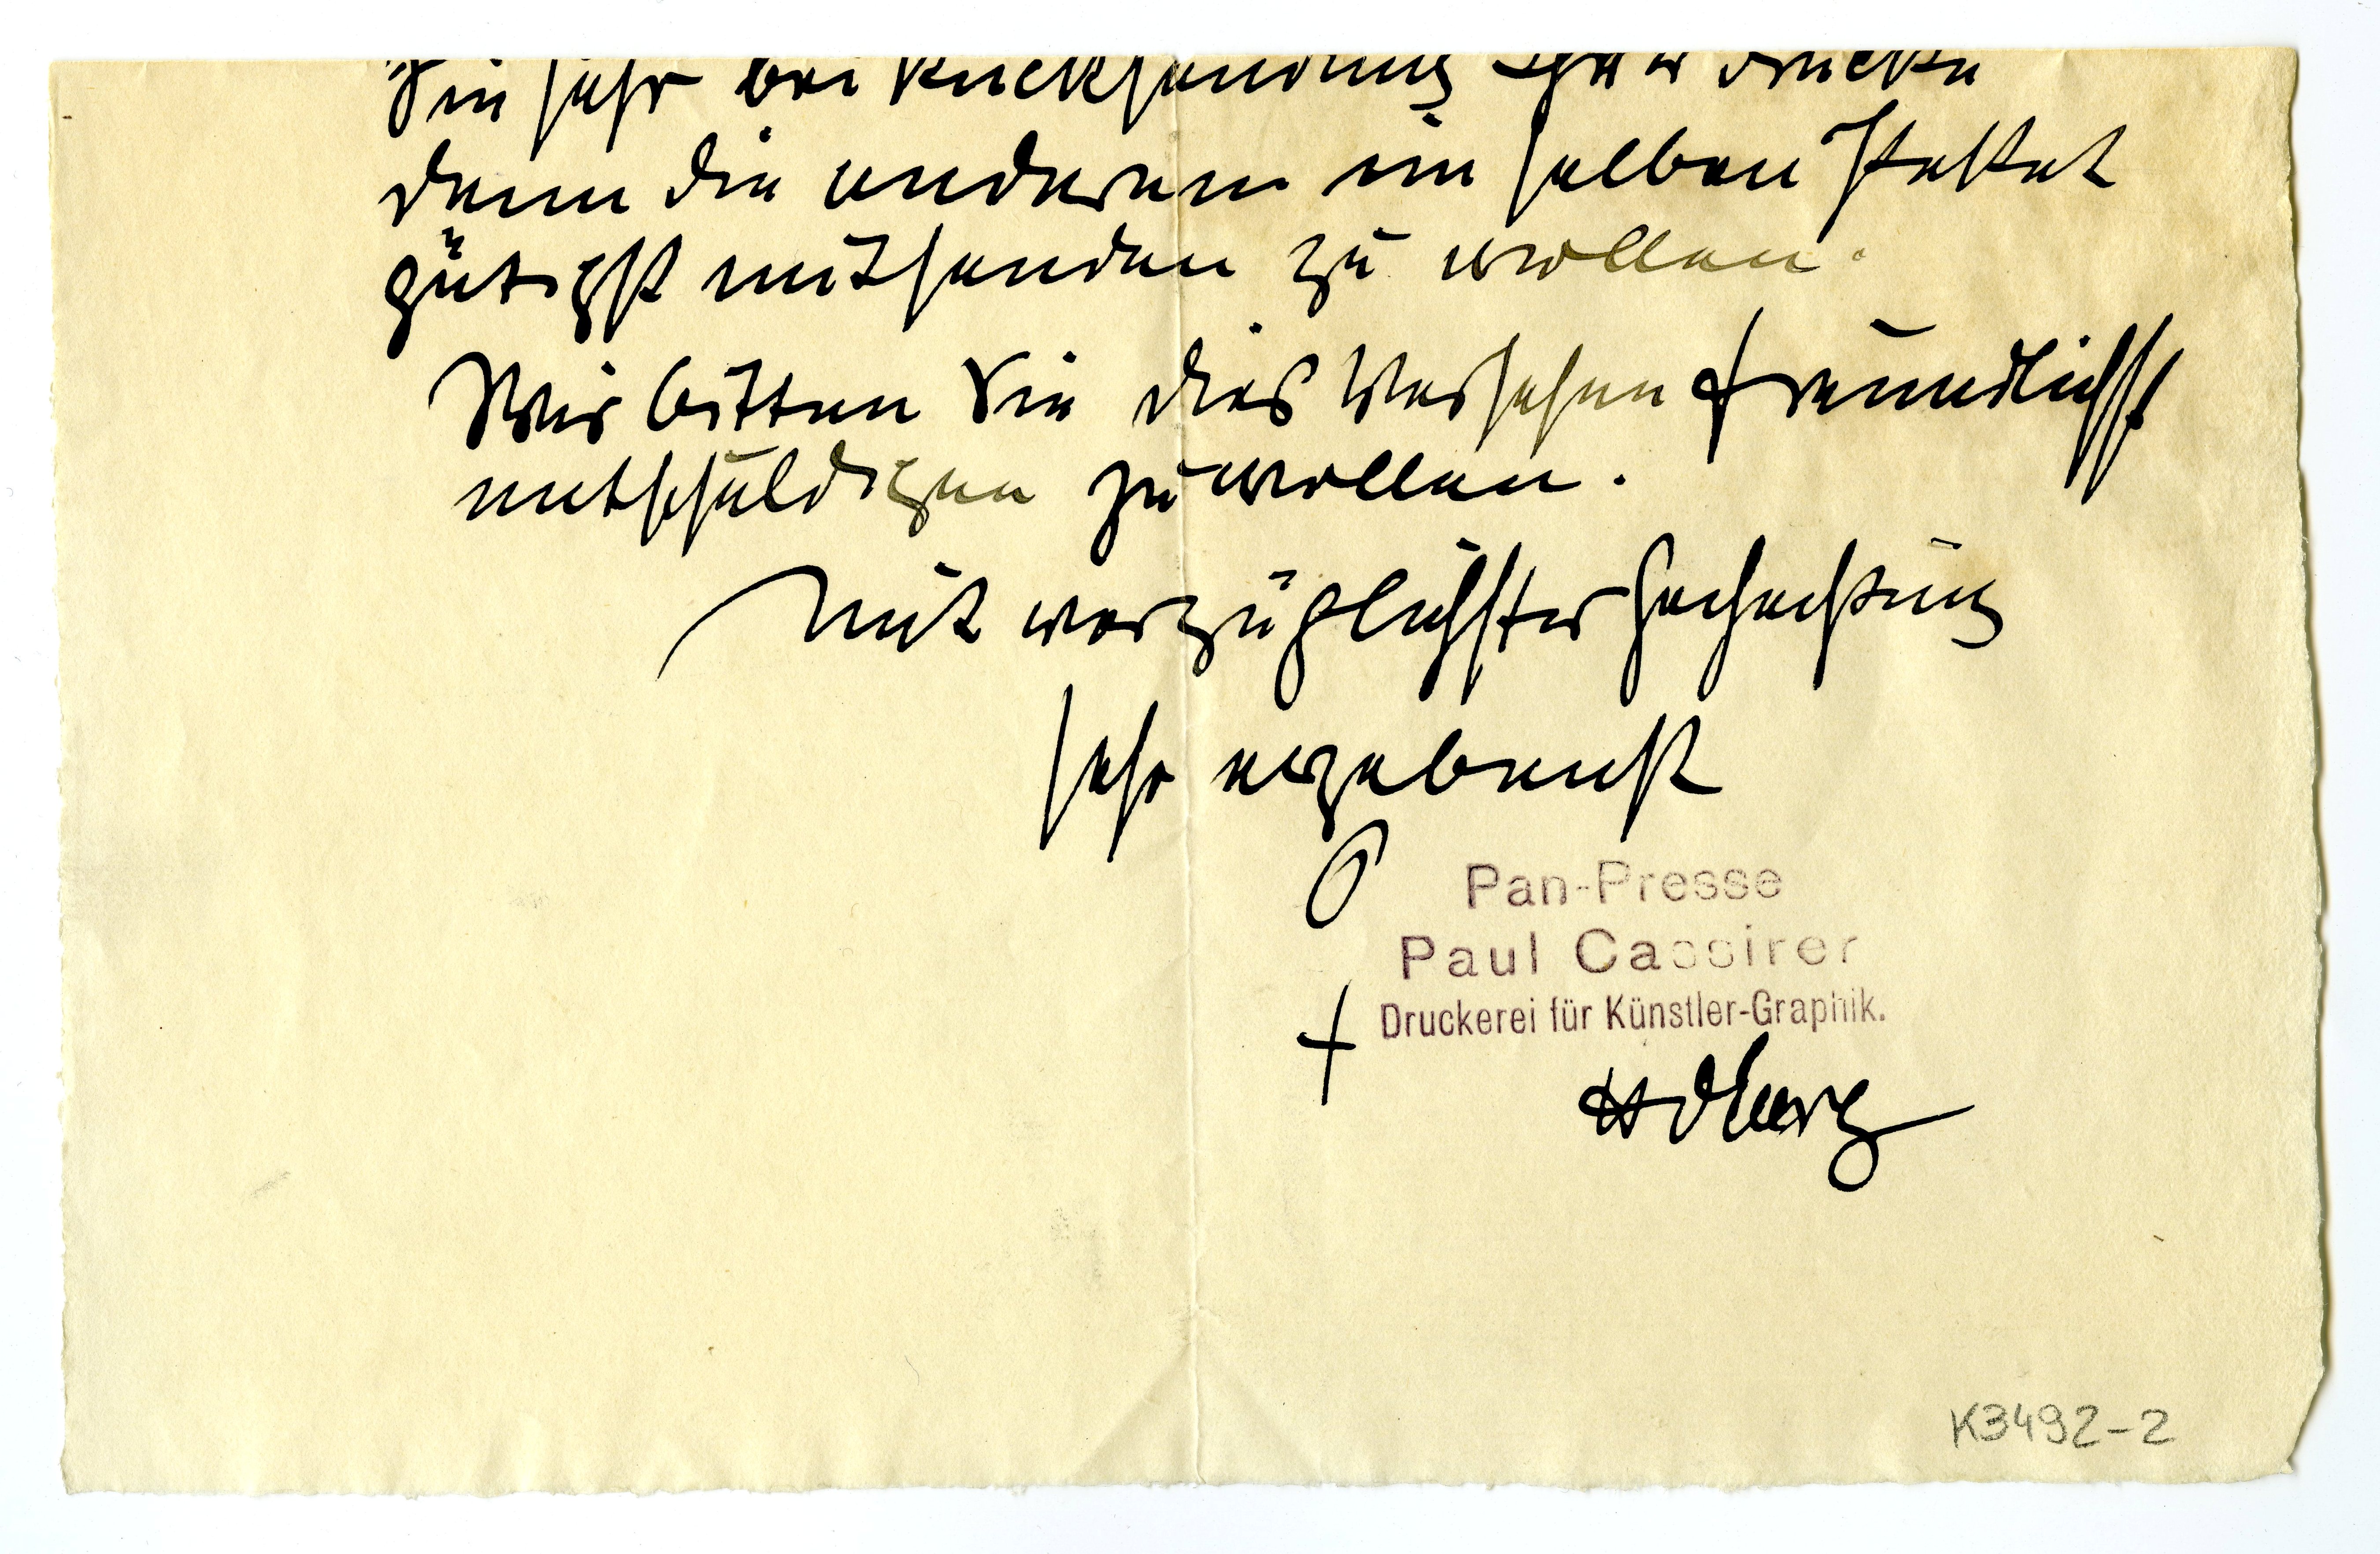 Sie sehr bei Rücksendung Ihrer Drucke
dann die anderen im selben Paket
gütigst mitsenden zu wollen.
Wir bitten Sie dies Versehen freundlichst
entschuldigen zu wollen.
Mit vorzüglichster Hochachtung
sehr ergebenst
Pan-Presse
Paul Cassirer
Druckerei für Künstler-Graphik.
K3492-2